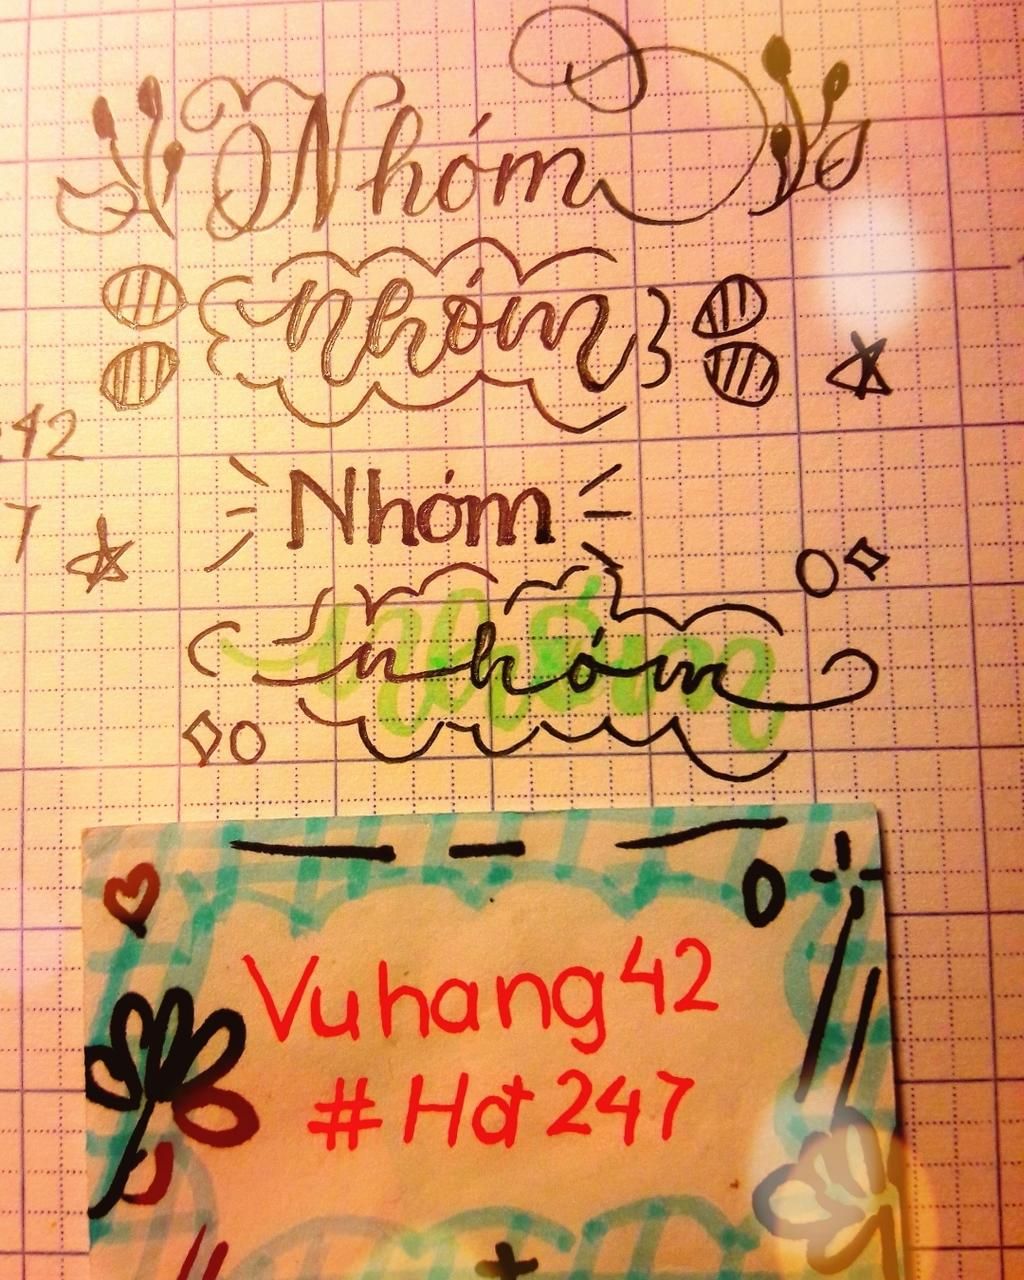 Nhóm
nhóm
42
Nhóm
7
nhóm
Vuhang42
#Hot247